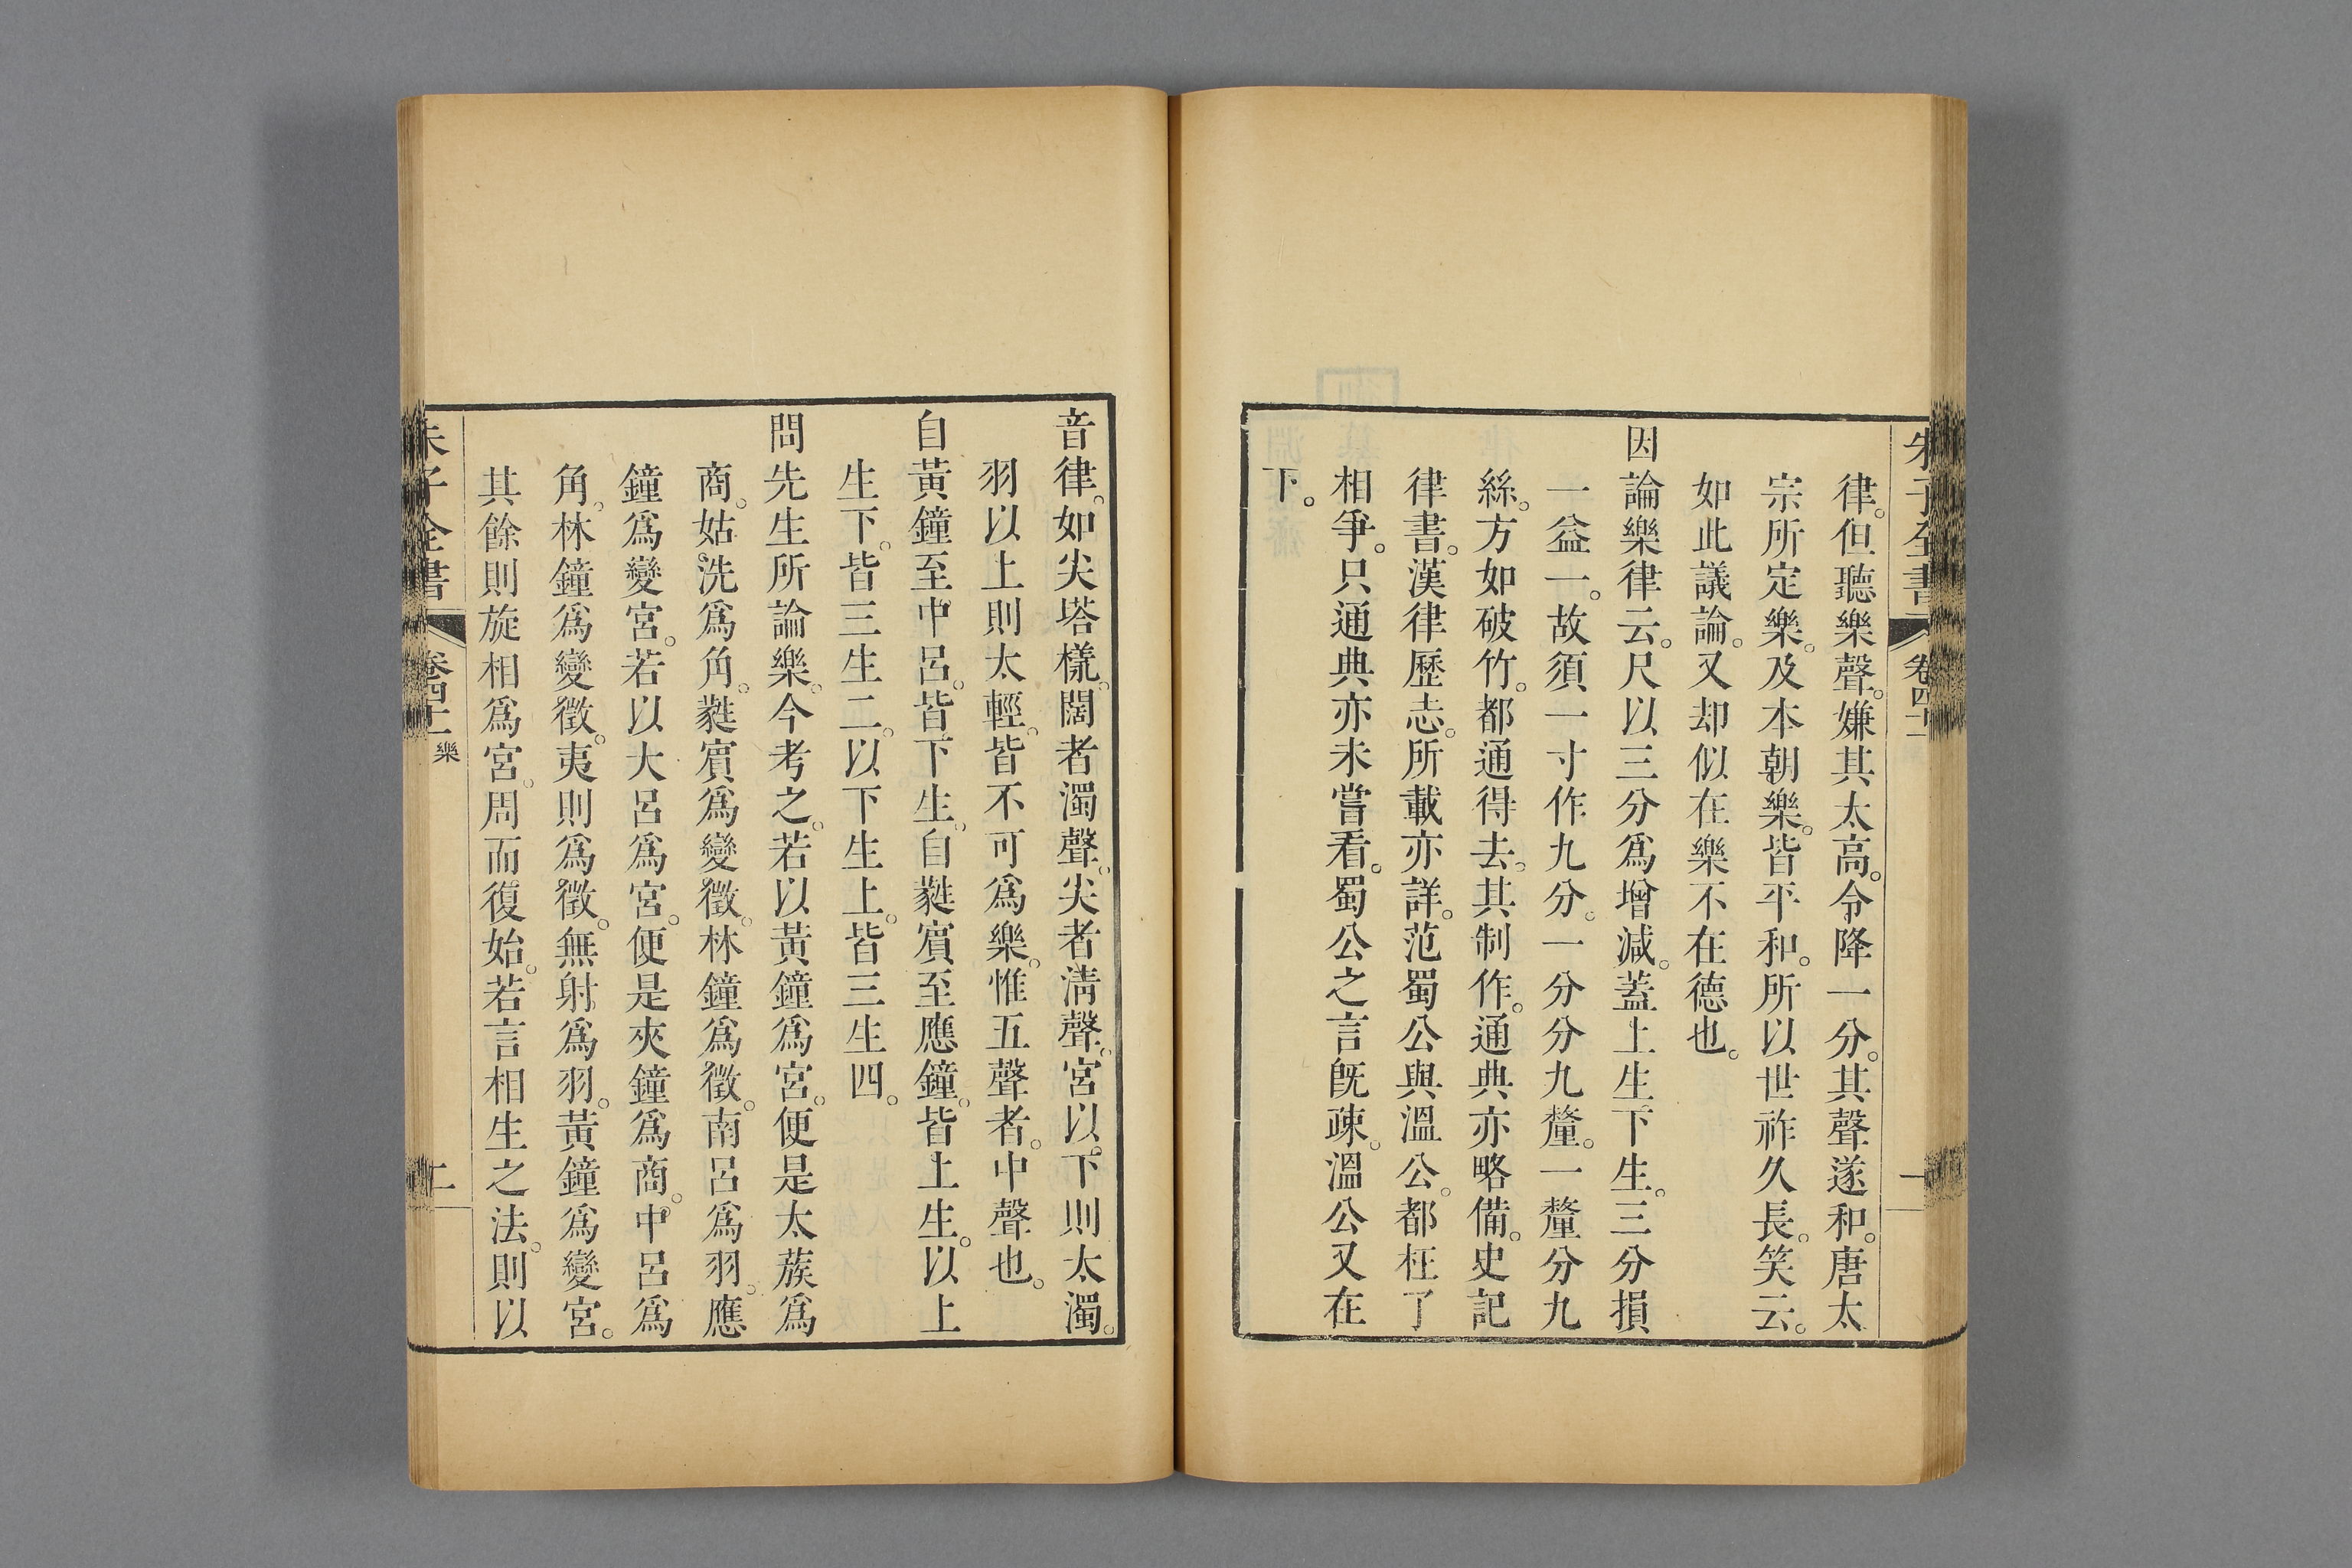 朱子全書 卷四十一 一
律。但聽樂聲。嫌其太高。令降一分。其聲遂和。唐太
宗所定樂。及本朝樂。皆平和。所以世祚久長。笑云。
如此議論。又却似在樂不在德也。
因論樂律云。尺以三分爲增減。蓋上生下生。三分損
一益一。故須一寸作九分。一分分九釐。一釐分九
絲。方如破竹。都通得去。其制作。通典亦略備。史記
律書。漢律歷志。所載亦詳。范蜀公與溫公。都枉了
相爭。只通典亦未嘗看。蜀公之言旣疎。溫公又在
下。
音律。如尖塔樣。闊者濁聲。尖者淸聲。宮以下則太濁。
羽以上則太輕。皆不可爲樂。惟五聲者。中聲也。
自黃鐘至中呂。皆下生。自蕤賓至應鐘。皆上生。以上
生下。皆三生二。以下生上。皆三生四。
問先生所論樂。今考之。若以黃鐘爲宮。便是太蔟爲
商。姑洗爲角。蕤賓爲變徵。林鐘爲徵。南呂爲羽。應
鐘爲變宮。若以大呂爲宮。便是夾鐘爲商。中呂爲
角。林鐘爲變徵。夷則爲徵。無射爲羽。黃鐘爲變宮。
其餘則旋相爲宮。周而復始。若言相生之法。則以
朱子全書 卷四十一 樂 二